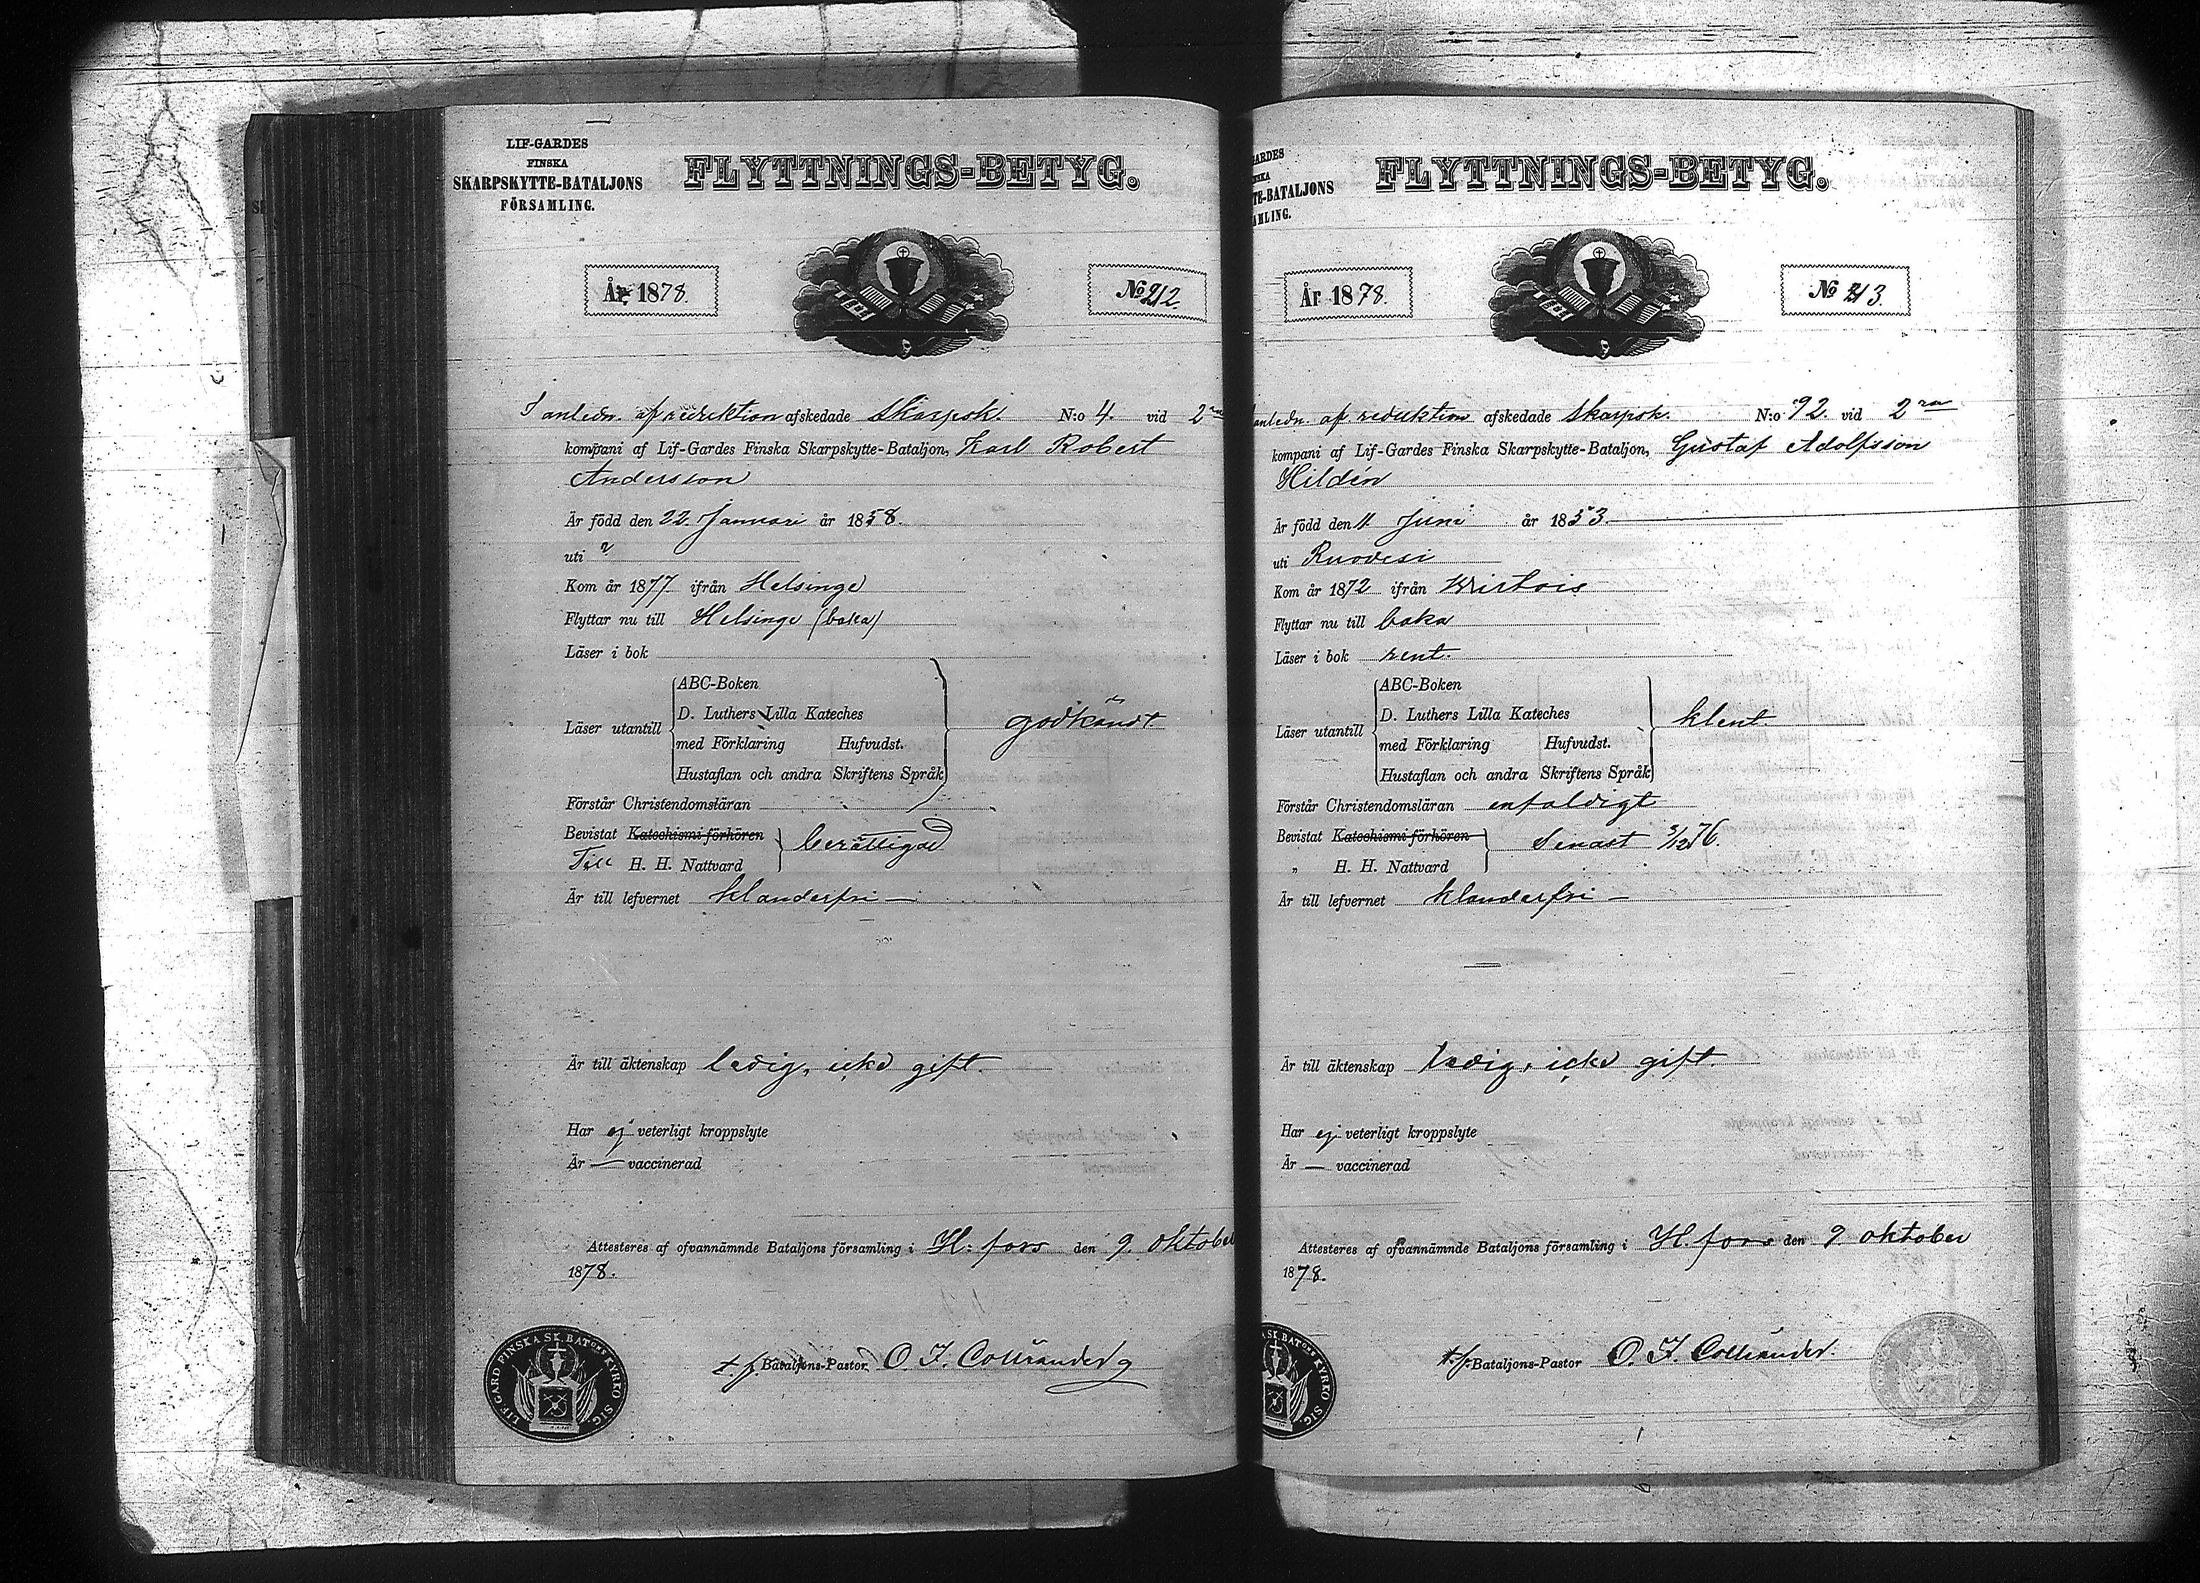 LIF-GARDES
FINSKA
SKARPSKYTTE-BATALJONS
FÖRSAMLING.
FLYTTNINGS-BETYG.
År 1878.
No 212.
I anledn. af reduktion afskedade Skarpsk. N:o 4. vid 2ra
kompani af Lif-Gardes Finska Skarpskytte-Bataljon, Karl Robert
Andersson
Är född den 22. Januari år 1858.
uti ?
Kom år 1877. ifrån Helsinge
Flyttar nu till Helsinge (boka)
Läser i bok
ABC-Boken
D. Luthers Lilla Kateches
Läser utantill godkändt
med Förklaring Hufvudst.
Hustaflan och andra Skriftens Språk
Förstår Christendomsläran
Bevistat Katechismi förhören berättigad
Till H. H. Nattvard
Är till lefvernet klanderfri —
Är till äktenskap ledig, icke gift.
Har ej veterligt kroppslyte
Är — vaccinerad
Attesteres af ofvannämnde Bataljons församling i H:fors den 9. oktober
1878.
t. f. Bataljons-Pastor O. F. Collrander
LIF.GARD.FINSKA SK. BATONS KYRKO SIG.
GARDES
SKA
TE-BATALJONS
AMLING.
FLYTTNINGS-BETYG.
År 1878.
No 213.
anledn. af reduktion afskedade Skarpsk. N:o 92. vid 2ra
kompani af Lif-Gardes Finska Skarpskytte-Bataljon, Gustaf Adolfsson
Hildén
Är född den 11. Juni år 1853.
uti Ruovesi
Kom år 1872 ifrån
Flyttar nu till boka
Läser i bok rent.
ABC-Boken
D. Luthers Lilla Kateches
Läser utantill klent.
med Förklaring Hufvudst.
Hustaflan och andra Skriftens Språk
Förstår Christendomsläran enfaldigt
Bevistat Katechismi förhören Senast 3/12 76.
„ H. H. Nattvard
Är till lefvernet klanderfri —
Är till äktenskap ledig, icke gift.
Har ej veterligt kroppslyte
Är — vaccinerad
Attesteres af ofvannämnde Bataljons församling i H.fors den 9. oktober
1878.
t. f. Bataljons-Pastor O. F. Collrander.
SK. BATONS KYRKO SIG.